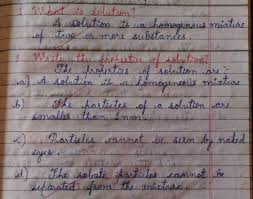 1. What is solution?
A solution is a homogenous mixture
of two or more substances.
2. Write the properties of solution?
The properties of solution are :-
a) A solution is a homogeneous mixture
b) The particles of a solution are
smaller than 1 nm.
c) Particles cannot be seen by naked
eyes.
d) The solute particles cannot be
separated from the mixture.